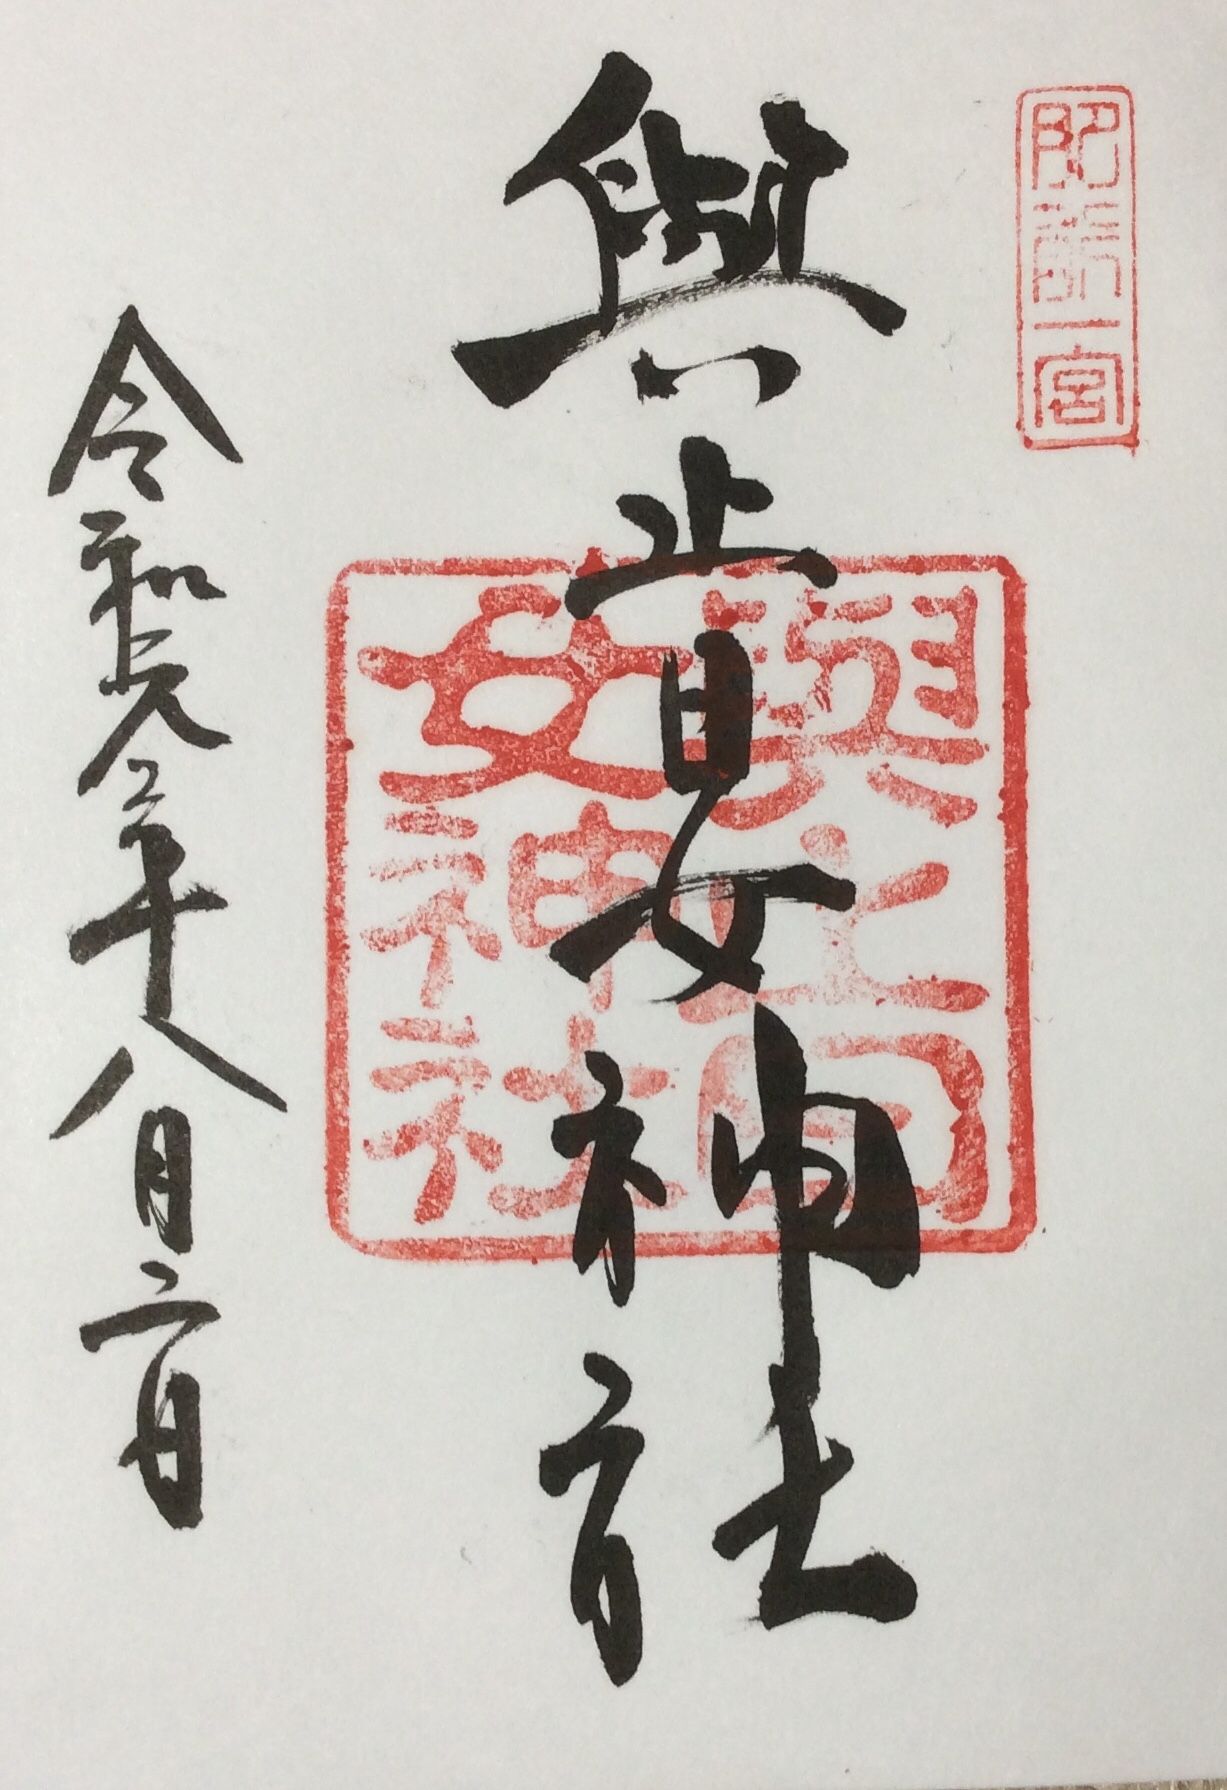 肥前一宮
與止日女神社
與止日女神社
令和元年八月二日